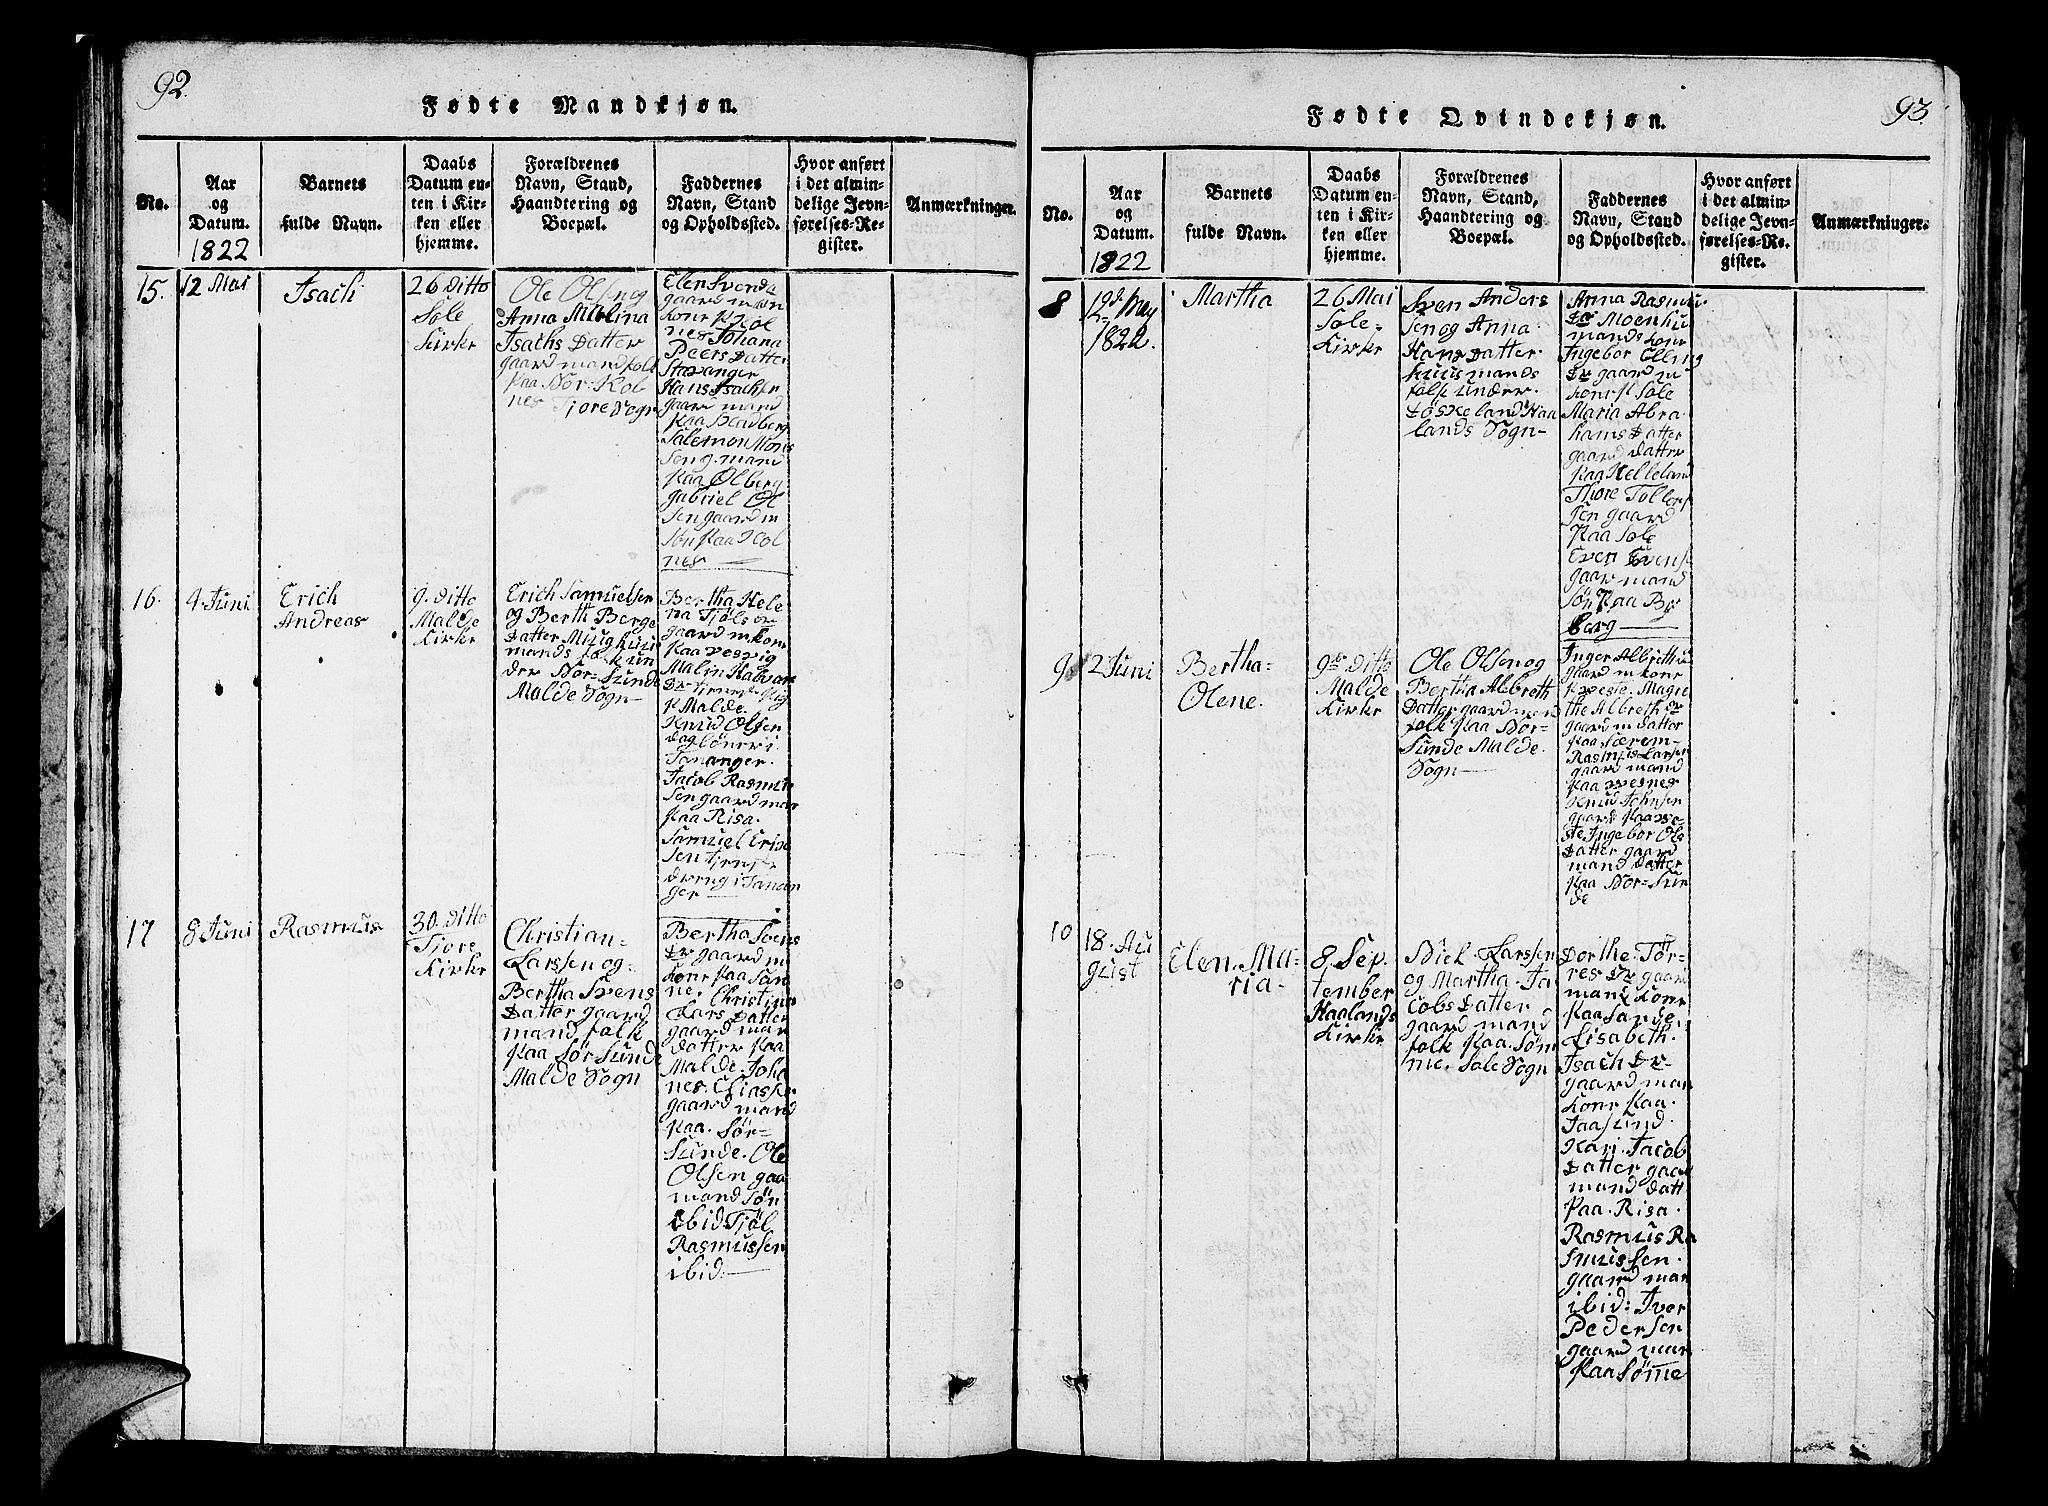 92.
Fødte Mandkjøn.
No.
Aar
og
Datum.
1822
Barnets
fulde Navn.
Daabs
Datum en-
ten i Kir-
ken eller
hjemme.
Forældrenes
Navn, Stand,
Haandtering og
Boepæl.
Faddernes
Navn, Stand
og Opholdssted.
Hvor anført
i det almin-
delige Jevn-
førelses-Re-
gister.
Anmærkninger.
15.
12 Mai
Isach
26 ditto
Sole
Kirke
Ole Olsen og
Anna Malina
Isachs Datter
gaard mand folk
paa Nor-Kol
nes Tjore Sogn
Elen Svends
gaard man
kone Kol
nes Johana
Peers Datter
Stavanger
Hans Isachse
gaard mand
paa Stadberg
Salemon Mons
sen g. mand
paa Ølberg
Gabriel Ol
sen gaard m
søn paa Kol
nes
16.
4 Juni
Erich
Andreas
9. ditto
Malde
Kirke
Erich Samuelsen
og Berth Berge
Datter Muug huus
mands folk un
der Nor-Sunde
Malde Sogn
Bertha Hele
na Tjøls Dr
gaard m kone
paa Vesvig
Malin Halvar
Dr tjenest Pig
p Malde.
Knud Olsen
daglöner i
Tananger.
Jacob Rasmu
sen gaard man
paa Risa.
Samuel Erik
sen tjenste
dreng i Tanan
ger
17
8 Juni
Rasmus
30. ditto
Tjore
Kirke
Christian
Larssen og
Bertha Svens
Datter gaard
mand folk
paa Sør Sunde
Malde Sogn
Bertha Svens
Dr gaard m
kone paa Sun
ne. Christina
Lars Datter
gaard man
datter paa
Malde. Joha
nes. Eliasse
gaard mand
paa. Sør-
Sunde. Ole
Olsen gaa
mand søn
ibid Tjøl
Rasmussen
ibid:
93.
Fødte Qvindekjøn.
No.
Aar
og
Datum.
1822
Barnets
fulde Navn.
Daabs
Datum en-
ten i Kir-
ken eller
hjemme.
Forældrenes
Navn, Stand,
Haandtering og
Boepæl.
Faddernes
Navn, Stand
og Opholdssted.
Hvor anført
i det almin-
delige Jevn-
førelses-Re-
gister.
Anmærkninger.
8
12d May
1822.
Martha
26 Mai
Sole-
Kirke
Sven Anders
sen og Anna
Hans Datter
huusmands
folk under
Röskeland Haa
lands Sogn
Anna Rasmu
Dr Moen hu
mands kone
Ingebor Elling
Dr gaard m
kone p Sole
Maria Abra
hams Datter
gaard datter
paa Helleland
Thore Tollef
sen gaard
paa Sole
Even Evens
gaar mand
Søn paa By
berg
9.
2 Juni
Bertha
Olene.
9de ditto
Malde
Kirke
Ole Olsen og
Bertha Albreth
Datter gaard mand
folk paa Nor-
Sunde Malde.
Sogn
Inger Albrethu
gaard m kone
Kveste. Magre
the Albreth Dr
gaard m datter
paa Særem-
Rasmus Larse
gaard mand
paa Vesnes
Knud Johnsen
gaard paa Ve
ste Ingebor Ole
Datter gaard
mand datter
paa Nor-Sun
de
10
18. Au
gust
Elen. Ma-
ria-
8. Sep.
tember
Haalands
Kirke
Diek. Larssen
og Martha. Ja
cobs Datter
gaard mand
folk paa. Søm
me. Sole Sogn
Dorthe. Tör-
res Dr gaard
mand kone
paa Sande.
Lisabeth.
Isach Dr-
gaard man
kone paa.
Jaasund.
Kari. Jacob
Datter gaar
mand datt
paa. Risa.
Rasmus Ra
smussen.
gaard man
ibid: Iver
Pedersen
gaard man
paa Sømme